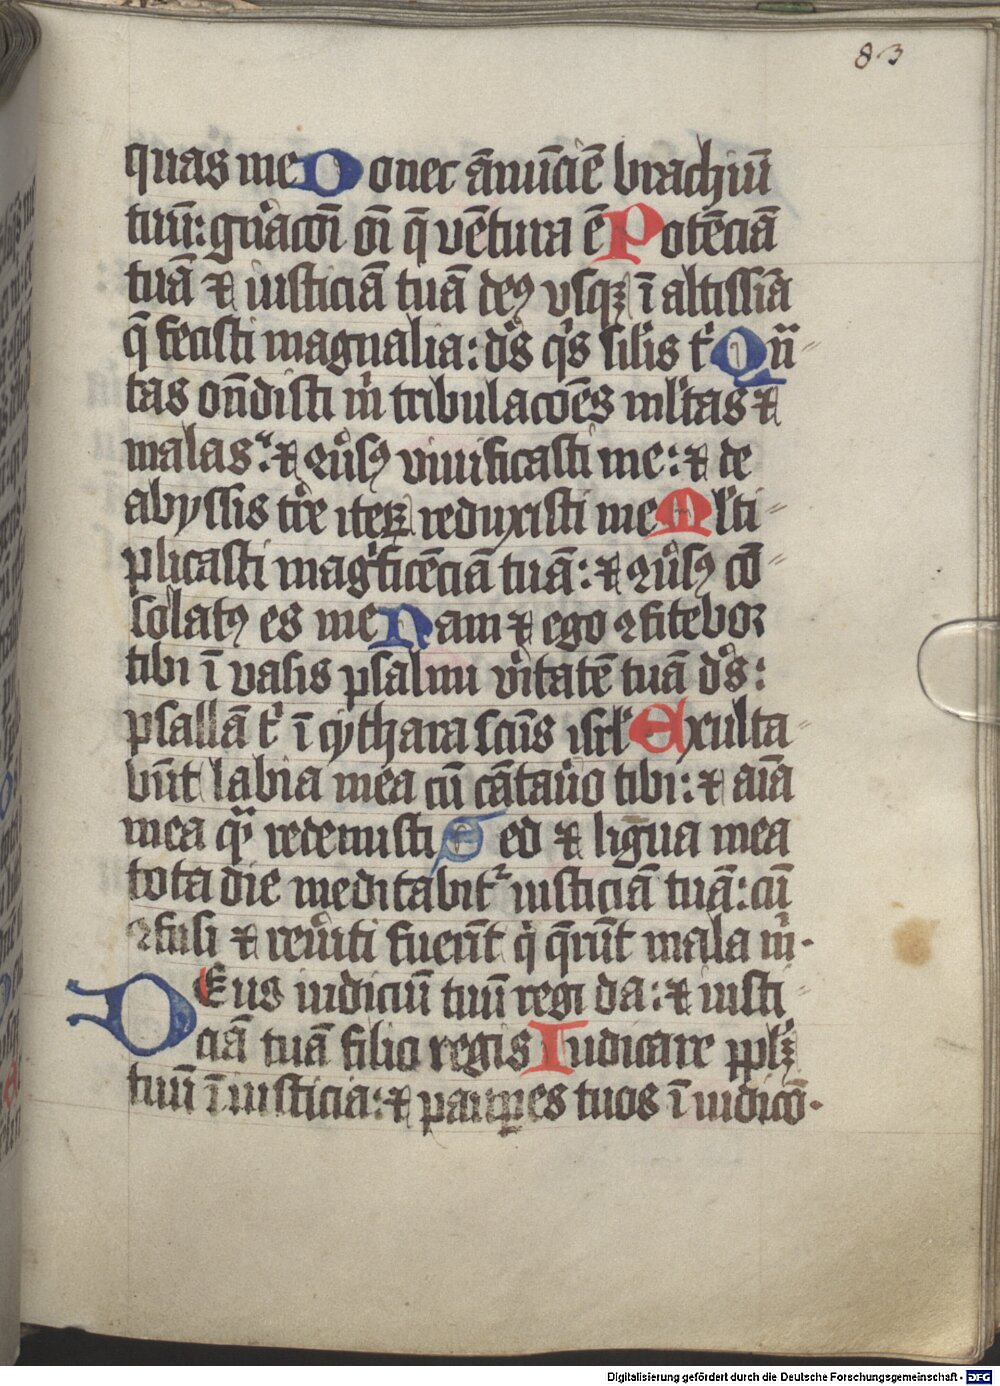 83
quas me Donec ānūciē brachiū
tuū: gn̄acōi oı̄ q̄ vētura ē Potēciā
tuā ⁊ iusticiā tuā deꝰ vsqꝫ ī altissīa
q̄ fecisti magnalia: dˢ qͥs silīs tͥ Qn̄
tas oñdisti m̄ tribulacōes ml̄tas ⁊
malas: ⁊ ꝯuͥsꝰ viuificasti me: ⁊ de
abyssis tr̄e iteꝝ reduxisti me Ml̄ti
plicasti magͥficēciā tuā: ⁊ ꝯuͥsꝰ cō
solatꝰ es me Nam ⁊ ego ꝯfitebor
tibi ī vasis psalmi v̄itatē tuā dˢ:
psallā tͥ ī cythara scūs isrl̄ Exulta
būt labia mea cū cātau̾o tibi: ⁊ aīa
mea qͣ redemisti Sed ⁊ ligua mea
tota die meditabit᷑ iusticiā tuā: cū
ꝯfusi ⁊ reu̾iti fuerīt qͥ q̄rūt mala m̄
DEus iudiciū tuū regi da: ⁊ iusti
ciā tuā filio regis Iudicare ppl̄ꝫ
tuū ī iusticia: ⁊ paupes tuos ī iudicō
Digitalisierung gefördert durch die Deutsche Forschungsgemeinschaft - DFG